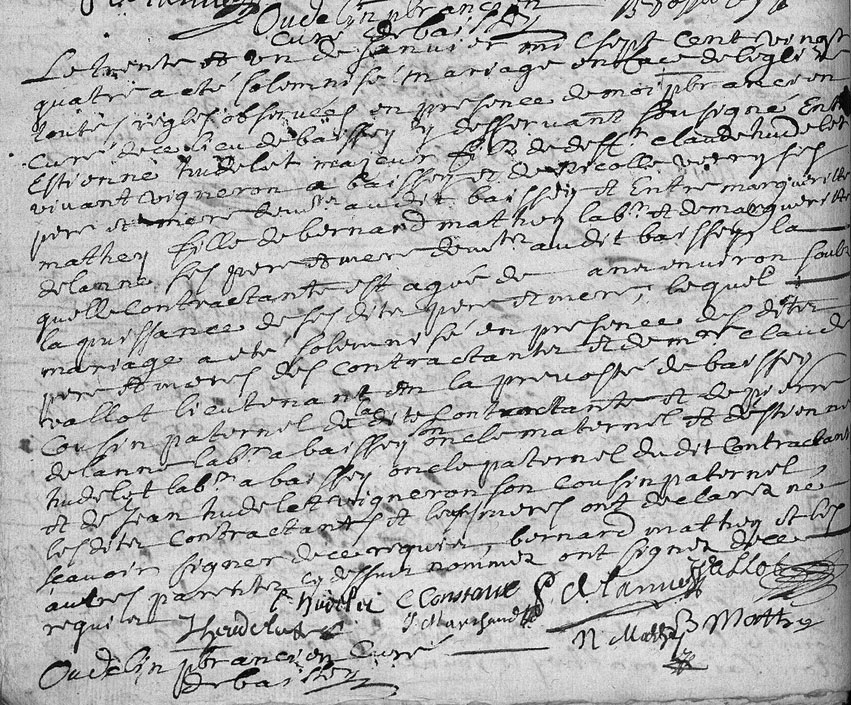 Oudelin pbr ancien
curé de baissey
Le trente et un de Janvier mil sept cent vingt
quatre a eté solemnisé mariage en face de leglise
toute regles observées en presence de moi pbr ancien
curé de ce lieu de baissey y desservant sousigné Entre
Estienne hudelot majeur fils de deff.t claude hudelot
vivant vigneron a baissey et de Nicolle verry ses
pere et mere audit baissey et Entre margueritte
mathey fille de bernard mathey lab.r et de marguerite
delanne ses pere et mere audit baissey la
quelle contractante est agué de ans environ soubs
la puissance de ses dits pere et mere, lequel
mariage a eté solemnisé en presence des dits
pere et meres des contractants et de m.re claude
vallot lieutenant en la prevosté de baissey
cousin paternel de la dite contractante et de pierre
delanne lab.r a baissey oncle maternel et destienne
hudelot lab.r a baissey oncle paternel du dit contractant
et de Jean hudelot vigneron son cousin paternel
les dits contractants et leurs meres ont declarez ne
scavoir signer de ce requis, bernard mathey et les
autres parents cy dessus nommez ont signez de ce
requis
E hudelot C Constant P delanne Vallot
J hudelot J Marchand
N Mathey B Mathey
Oudelin pbr ancien Curé
de baissey